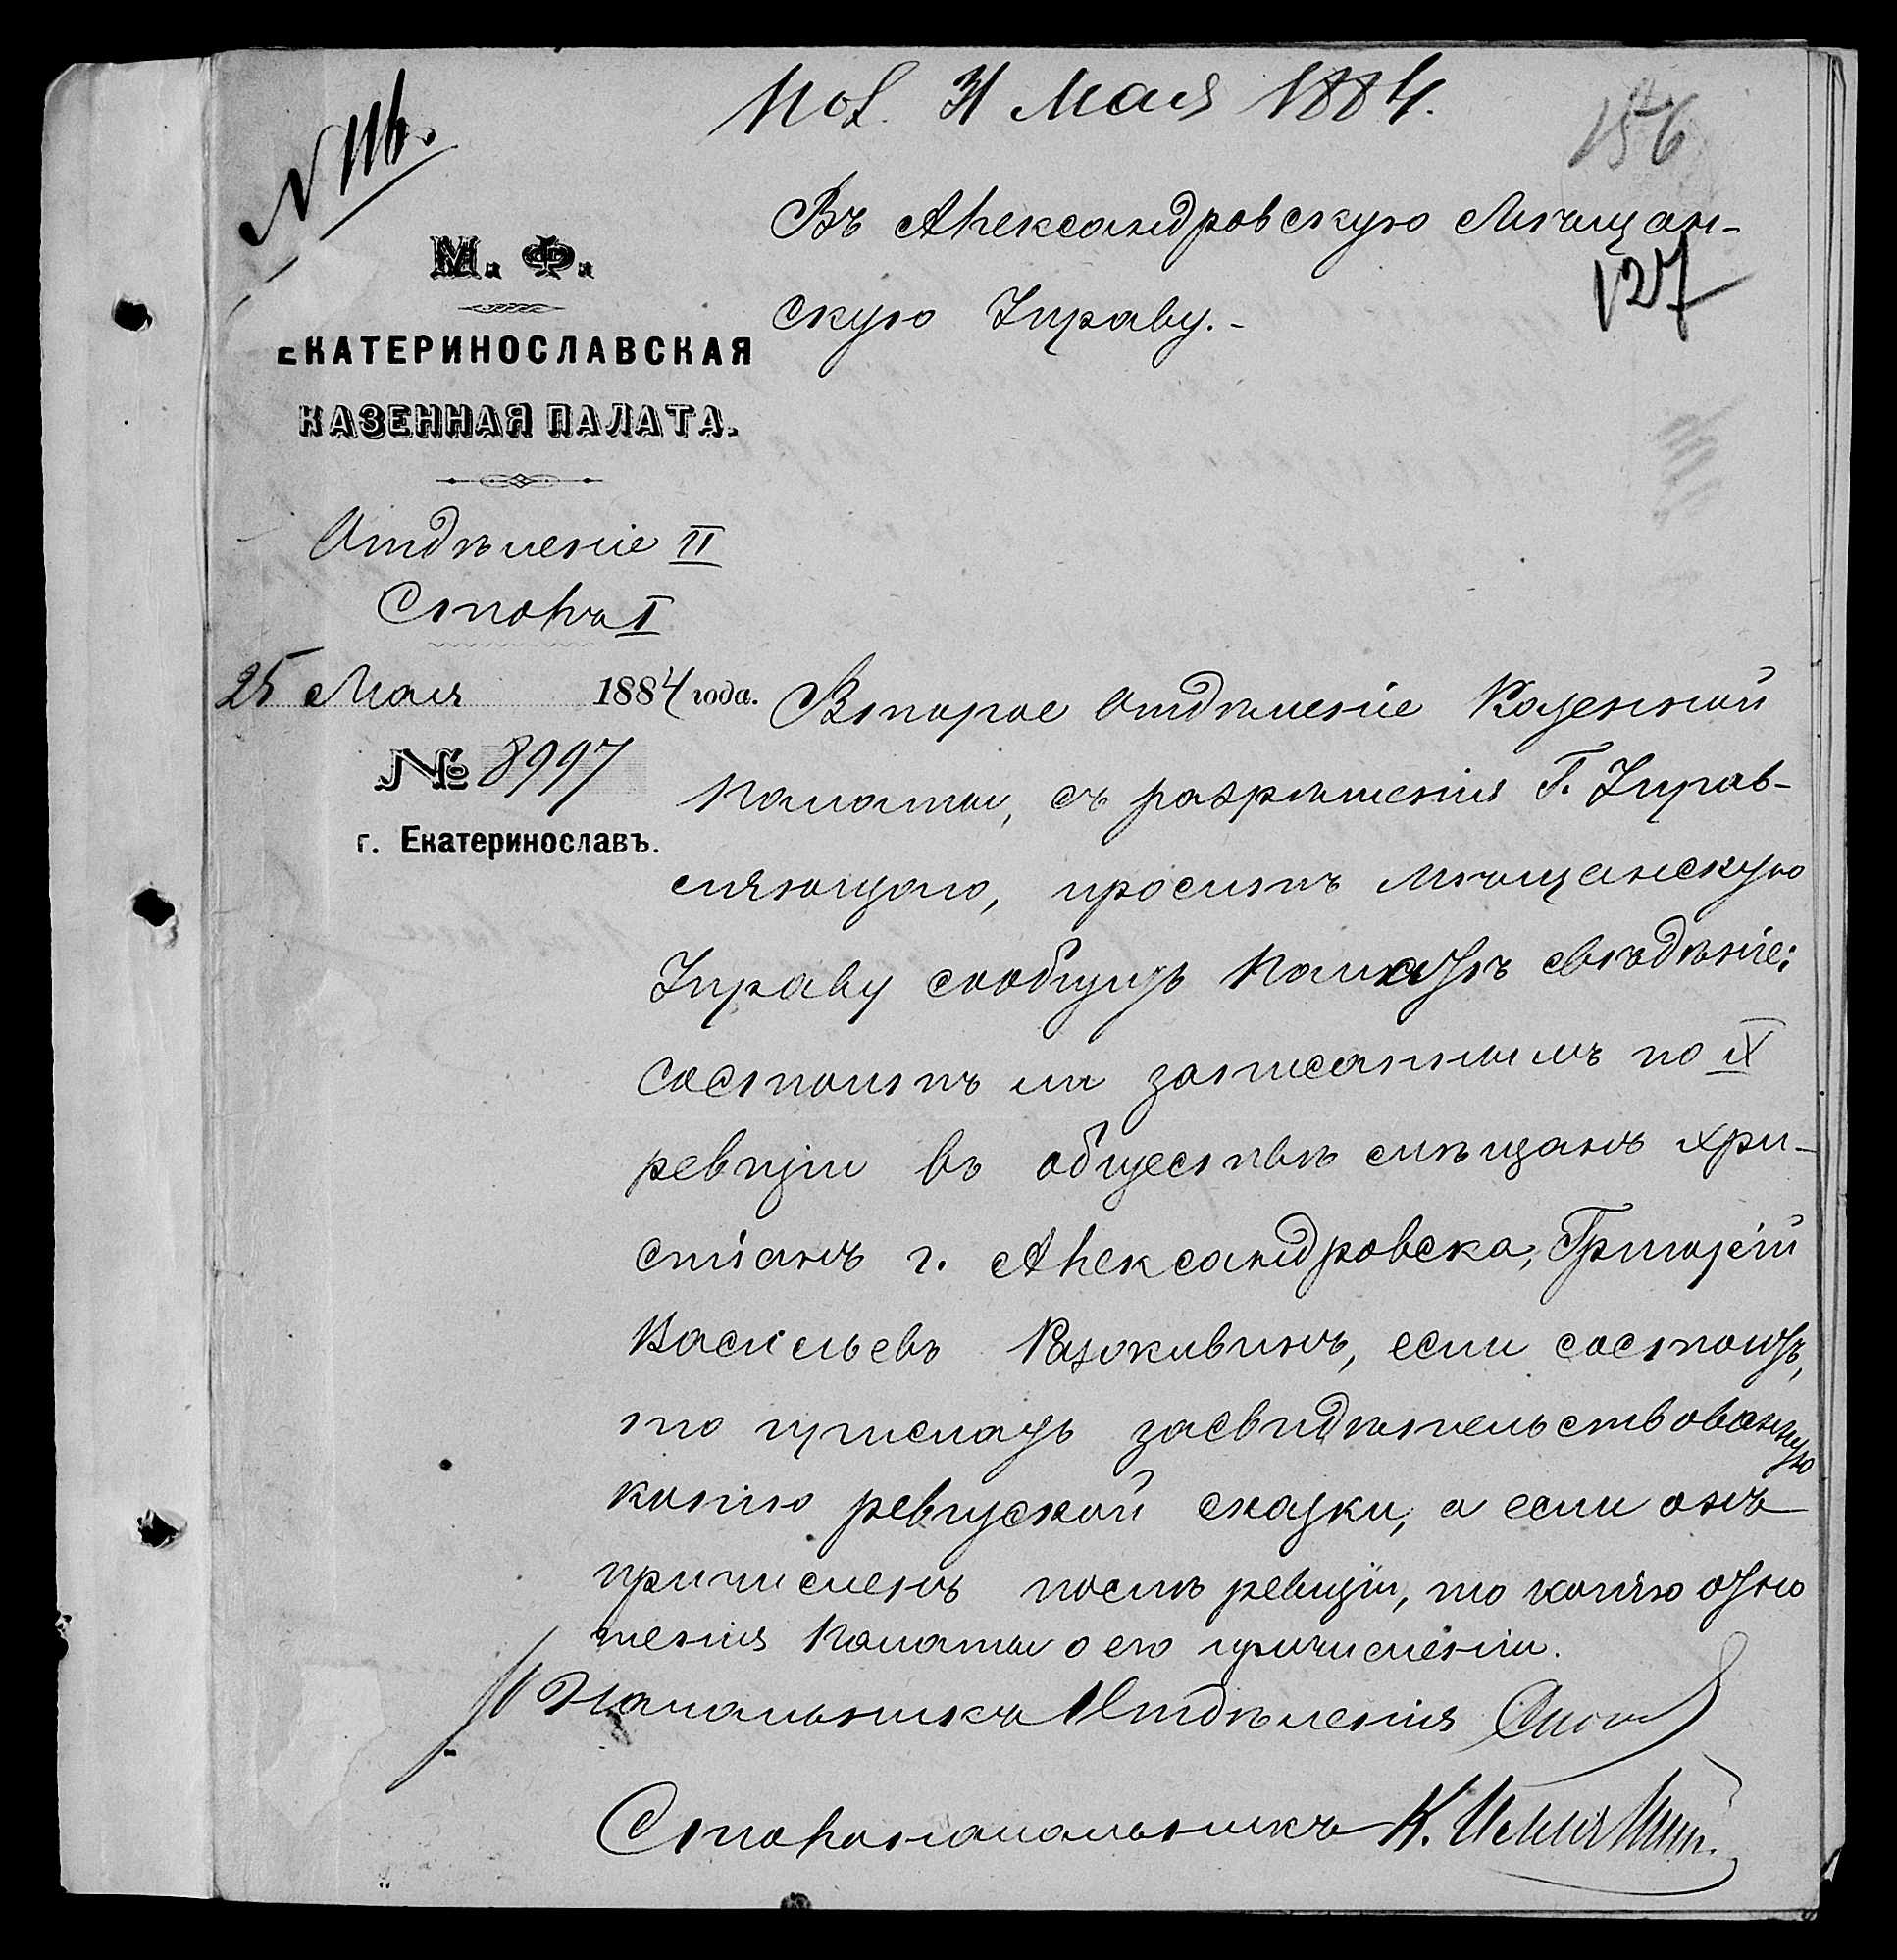 Пол. 31 Мая 1884.
N 116.
156
Въ Александровскую Мѣщан-
127
скую Управу.-
М. Ф.
ЕКАТЕРИНОСЛАВСКАЯ
КАЗЕННАЯ ПАЛАТА.
Отдѣленіе II
Столъ I
25 Мая 1884 года.
№ 8997
г. Екатеринославъ.
Второе Отдѣленіе Казенной
Палаты, съ разрѣшенія Г. Управ-
ляющаго, проситъ Мѣщанскую
Управу сообщить Палатѣ свѣдѣніе:
состоитъ ли записаннымъ по IX
ревизіи въ обществѣ мѣщанъ хри-
стіанъ г. Александровска, Григорій
Васильевъ если состоитъ,
то прислать засвидѣтельствованную
копію ревизской сказки, а если онъ
причисленъ послѣ ревизіи, то копію отно
шенія Палаты о его причисленіи.
Начальникъ Отдѣленія
Столоначальникъ К.